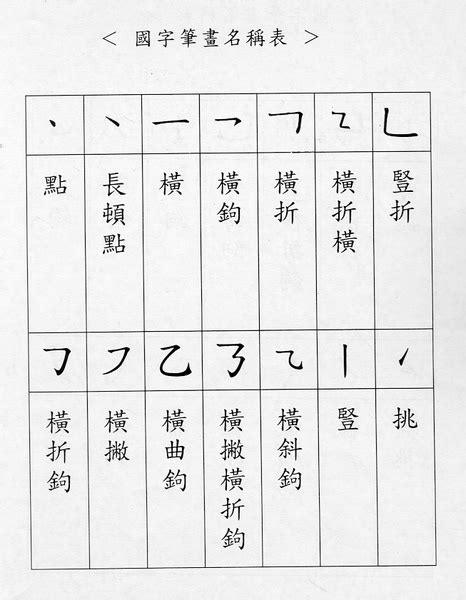 < 國字筆畫名稱表 >
丶 ㇔ 一 乛 ㇕ ㇍ ㇄
點 長頓點 橫 橫鉤 橫折 橫折橫 豎折
㇆ ㇇ 乙 ㇡ ㇈ 丨 ㇀
橫折鉤 橫撇 橫曲鉤 橫撇橫折鉤 橫斜鉤 豎 挑